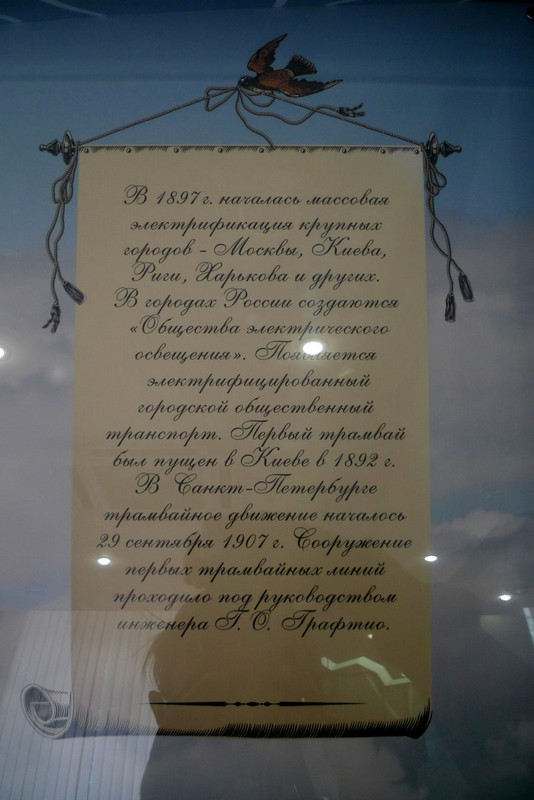 В 1897 г. началась массовая
электрификация крупных
городов - Москвы, Киева,
Риги, Харькова и других.
В городах России создаются
«Общества электрического
освещения». Появляется
электрифицированный
городской общественный
транспорт. Первый трамвай
был пущен в Киеве в 1892 г.
В Санкт-Петербурге
трамвайное движение началось
29 сентября 1907 г. Сооружение
первых трамвайных линий
проходило под руководством
инженера Г. О. Графтио.